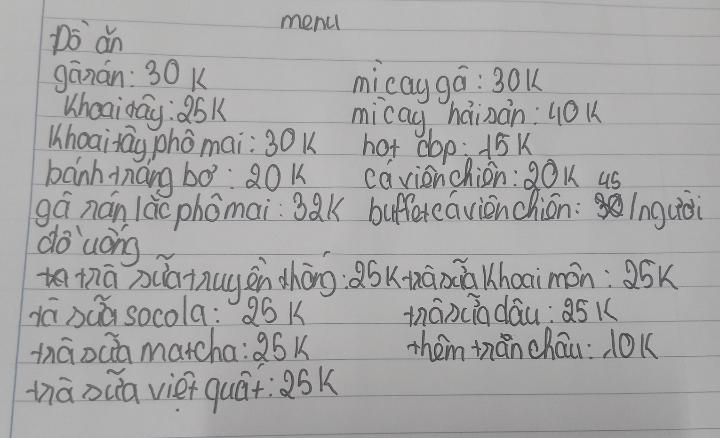 menu
Đồ ăn
gà rán: 30K mì cay gà: 30K
Khoai tây: 25K mì cay hải sản: 40K
Khoai tây phô mai: 30K hot dop: 15K
bánh tráng bơ: 20K cá viên chiên: 20K
gà rán lắc phô mai: 32K buffet cá viên chiên: 45/người
đồ uống
trà sữa truyền thống: 25K trà sữa khoai môn: 25K
tà sữa socola: 25K trà sữa dâu: 25K
trà sữa matcha: 25K thêm trân châu: 10K
trà sữa việt quất: 25K